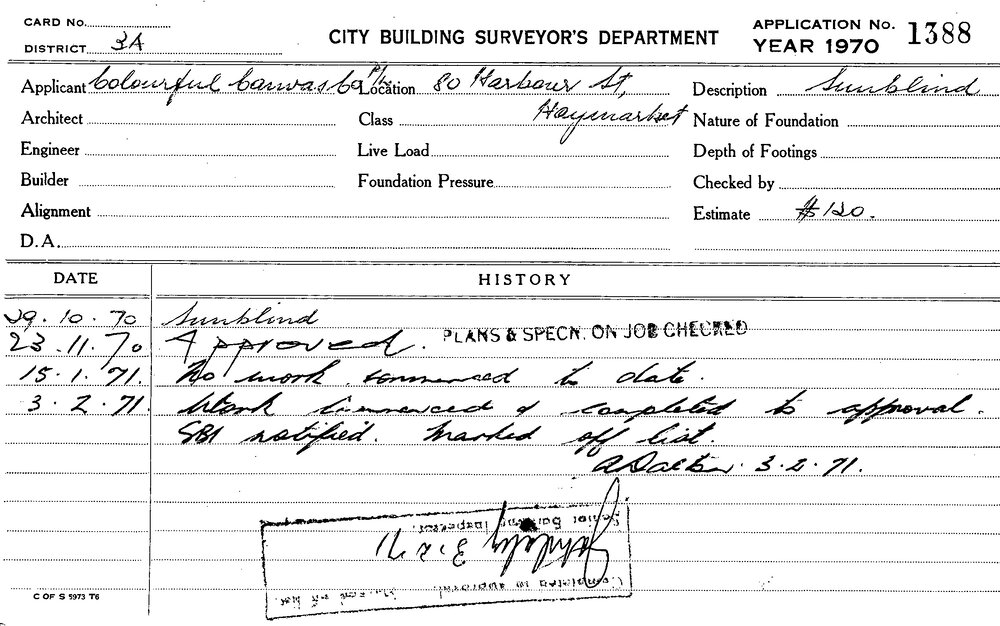 CARD No.
DISTRICT 3A
CITY BUILDING SURVEYOR'S DEPARTMENT
APPLICATION No. 1388
YEAR 1970
Applicant Colourful Canvas Co P/L Location 80 Harbour St, Description Sunblind
Architect Class Haymarket Nature of Foundation
Engineer Live Load Depth of Footings
Builder Foundation Pressure Checked by
Alignment Estimate $120.
D.A.
DATE HISTORY
29.10.70 Sunblind
23.11.70 Approved. PLANS & SPECN. ON JOB CHECKED
15.1.71. No work commenced to date.
3.2.71. Work commenced & completed to approval.
SBI notified. Marked off list.
A Dalton. 3.2.71.
Completed to approval.
Marked off list.
3.2.71
Senior Building Inspector.
C OF S 5973 T6